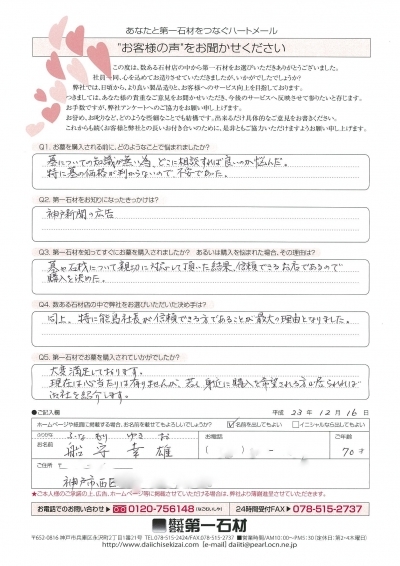 あなたと第一石材をつなぐハートメール
"お客様の声"をお聞かせください
この度は、数ある石材店の中から第一石材をお選びいただきありがとうございました。
社員一同、心を込めてお造りさせていただきましたが、いかがでしたでしょうか?
弊社では、日頃から、より良い製品造りと、お客様へのサービス向上を目指しております。
つきましては、あなた様の貴重なご意見をお聞かせいただき、今後のサービスへ反映させて参りたいと存じます。
お手数ですが、弊社アンケートへのご協力をいただけますようお願い申し上げます。
お誉め、お叱りなど、どのような些細なことでも結構です。出来るだけ具体的なご意見をお書きください。
これからも続くお客様と弊社との長いお付き合いのために、是非ともご協力いただけますようお願い申し上げます。
Q1. お墓を購入される前に、どのようなことで悩まれましたか?
墓についての知識が無い為、どこに相談すれば良いのか悩んだ。
特に墓の価格が判からないので、不安であった。
Q2. 第一石材をお知りになったきっかけは?
神戸新聞の広告
Q3. 第一石材を知ってすぐにお墓を購入されましたか? あるいは購入を悩まれた場合、その理由は?
墓や石材について親切に対応して頂いた結果、信頼できるお店であるので
購入を決めた。
Q4. 数ある石材店の中で弊社をお選びいただいた決め手は?
同上、特に能島社長が信頼できる方であることが最大の理由となりました。
Q5. 第一石材でお墓を購入されていかがでしたか?
大変満足しております。
現在は心当たりは有りませんが、若し身近に購入を希望される方が居られれば
御社を紹介します。
●ご記入欄 平成 23年 12月 16日
ホームページや紙面に掲載する場合、お名前を載せてもよろしいでしょうか? ✓名前を出してもよい イニシャルなら出してもよい
ふりがな ふなもり ゆきお
お名前 船守 幸雄
お電話 ( ) -
ご年齢 70才
ご住所 〒
神戸市西区
★ご本人様のご承諾の上、広告、ホームページ等に掲載させていただける場合は、弊社より薄謝進呈させていただきます。
お電話でのお問い合わせ▶ 0120-756148 (なごむいしや) 24時間受付FAX▶ 078-515-2737
株式会社 第一石材
〒652-0816 神戸市兵庫区永沢町2丁目1番21号 TEL.078-515-2424/FAX.078-515-2737 ■営業時間/AM10:00〜PM5:30 (定休日:第2・4木曜日)
http://www.daiichisekizai.com [e-mail] daiiti@pearl.ocn.ne.jp